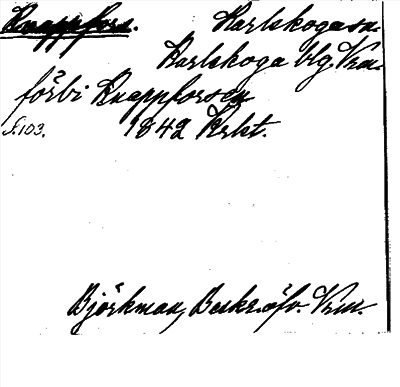 Knappfors. Karlskoga sn.
Karlskoga blg. Vrm.
förbi Knappforsen
S.103. 1842 Krkt.
Björkman, Beskr. öfv. Vrm.